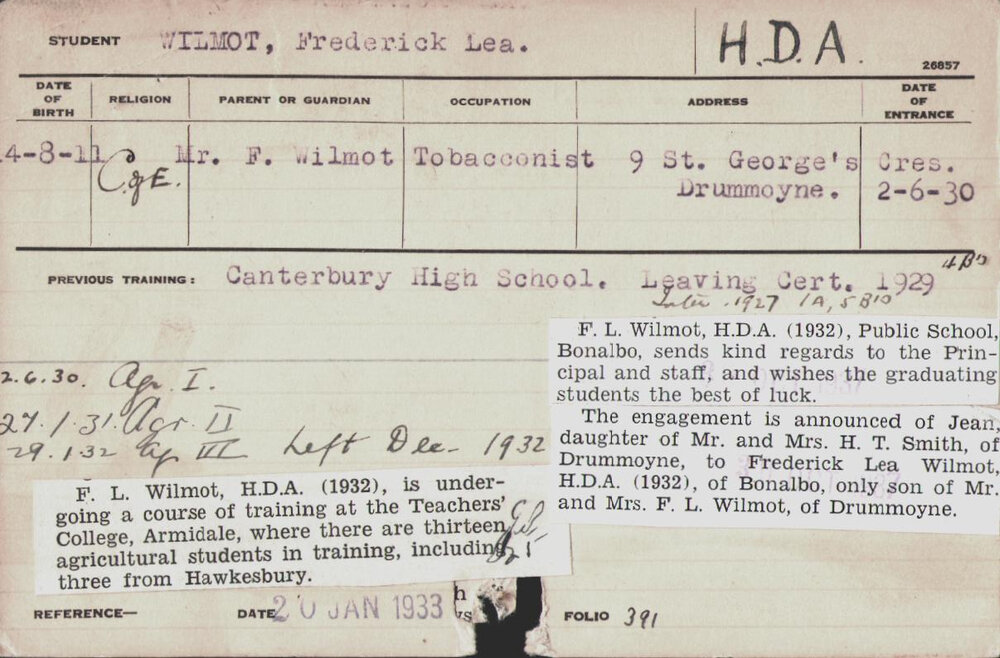 STUDENT WILMOT, Frederick Lea. H.D.A. 26857
DATE OF BIRTH RELIGION PARENT OR GUARDIAN OCCUPATION ADDRESS DATE OF ENTRANCE
4-8-11 C of E. Mr. F. Wilmot Tobacconist 9 St. George's Cres.
Drummoyne. 2-6-30
PREVIOUS TRAINING: Canterbury High School. Leaving Cert. 1929 4B's
Inter. 1927 1A, 5B's
F. L. Wilmot, H.D.A. (1932), Public School,
Bonalbo, sends kind regards to the Prin-
cipal and staff, and wishes the graduating
students the best of luck.
The engagement is announced of Jean,
daughter of Mr. and Mrs. H. T. Smith, of
Drummoyne, to Frederick Lea Wilmot,
H.D.A. (1932), of Bonalbo, only son of Mr.
and Mrs. F. L. Wilmot, of Drummoyne.
2.6.30. Agr. I.
27.1.31. Agr. II
29.1.32 Agr III Left Dec. 1932
F. L. Wilmot, H.D.A. (1932), is under-
going a course of training at the Teachers'
College, Armidale, where there are thirteen
agricultural students in training, including
three from Hawkesbury.
REFERENCE— DATE 20 JAN 1933 FOLIO 391